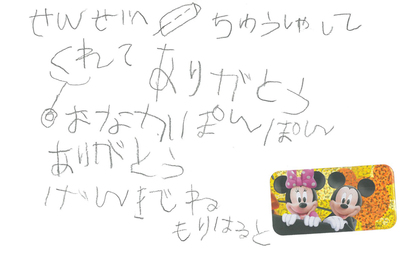 せんせいへ ちゅうしゃして
くれて ありがとう
おなかいぽんぽん
ありがとう
げんきでね
もりはると